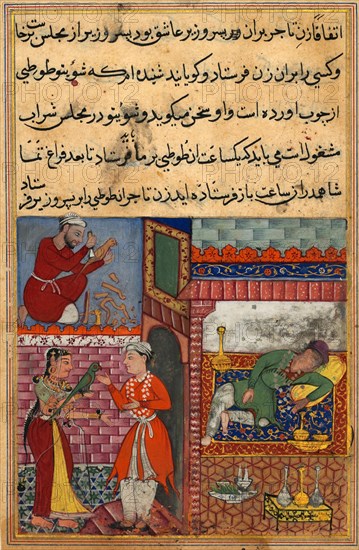 اتفاقا زن تاجر بران پسر وزیر عاشق بود پسر وزیر از مجلس برخاست
و کسی را بران زن فرستاد و گویاند شنیده ام که شوی تو طوطی
از چوب آورده است و او سخن میگوید و شوی تو در مجلس شراب
مشغول است می باید که یکساعت ان طوطی بر ما فرستاد تا بعد فراغ تماشا
شاهد ان ساعت باز فرستاده اید زن تاجر ان طوطی را بر پسر وزیر فرستاد